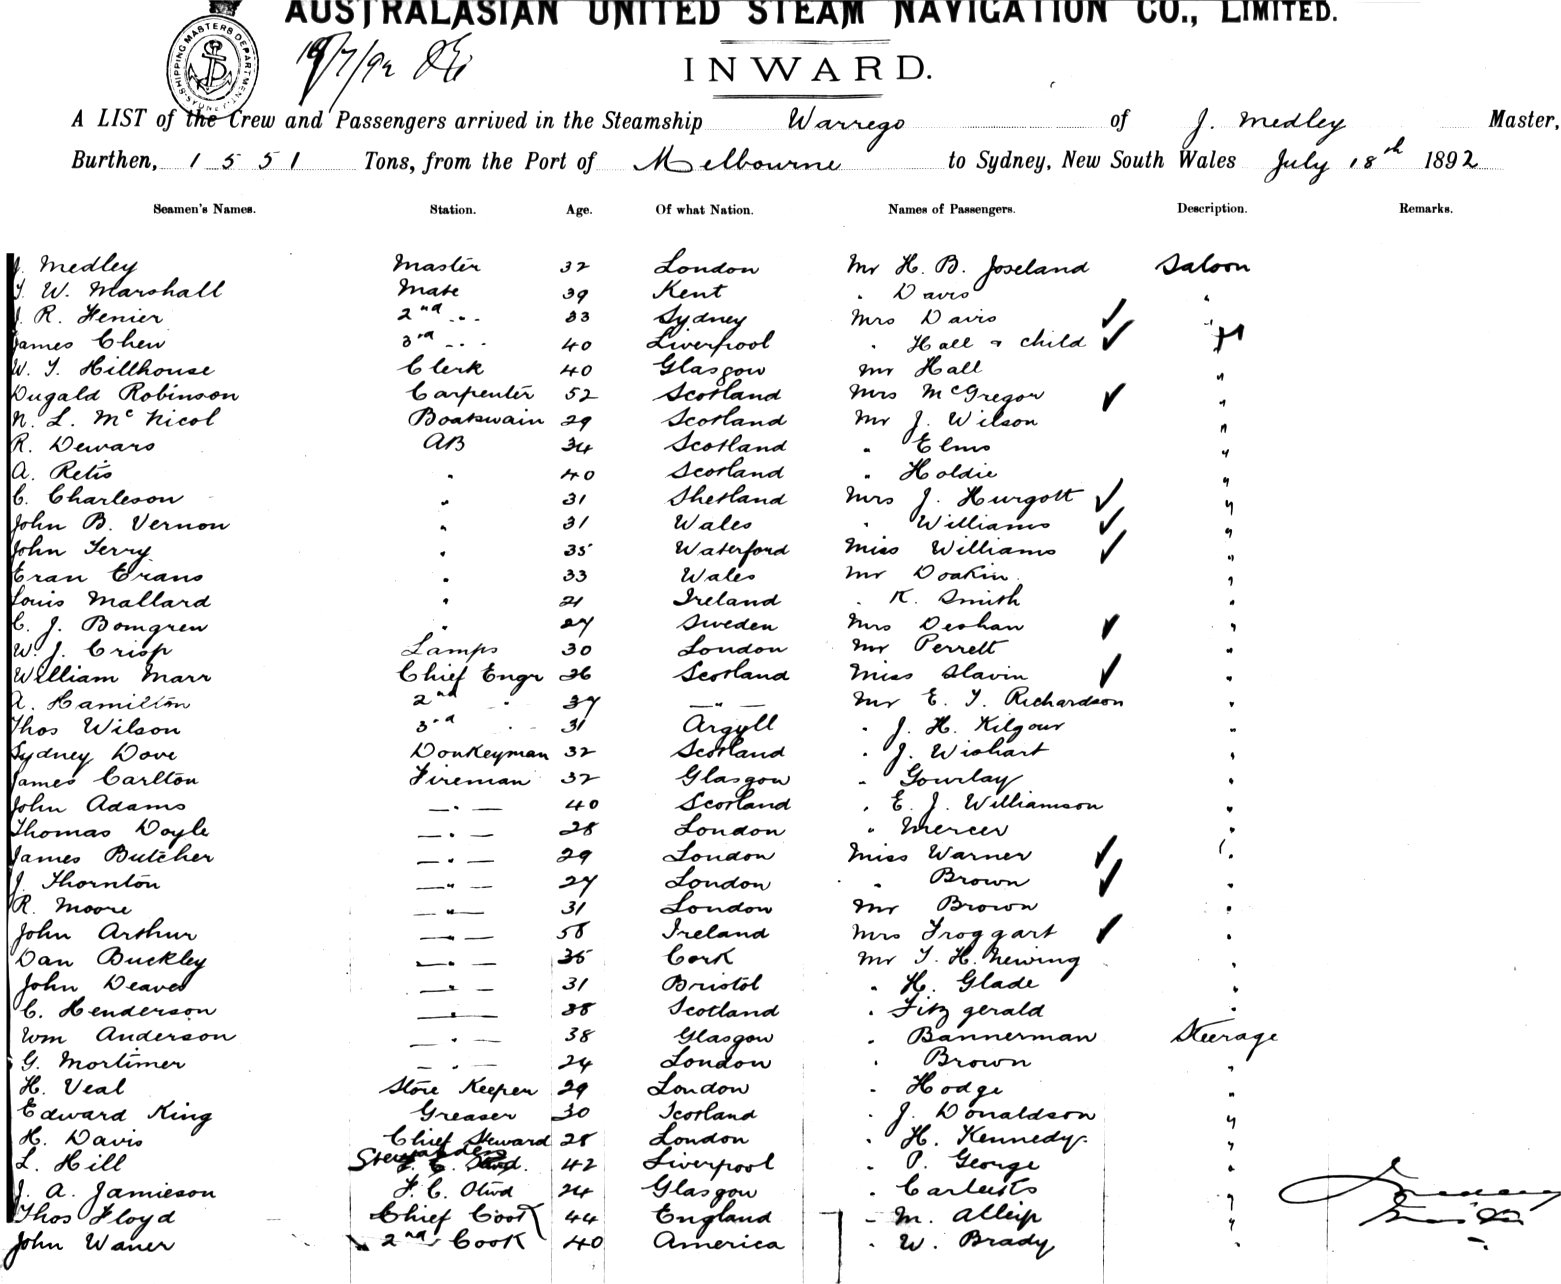 AUSTRALASIAN UNITED STEAM NAVIGATION CO., LIMITED.
SHIPPING MASTERS DEPARTMENT SYDNEY
18/7/92
INWARD.
A LIST of the Crew and Passengers arrived in the Steamship Warrego of J. Medley Master,
Burthen, 1551 Tons, from the Port of Melbourne to Sydney, New South Wales July 18th 1892
Seamen's Names. Station. Age. Of what Nation. Names of Passengers. Description. Remarks.
J. Medley Master 32 London Mr H. B. Joseland Saloon
T. W. Marshall Mate 39 Kent " Davis "
J. R. Fenier 2nd " 33 Sydney Mrs Davis ✓ "
James Chew 3rd " 40 Liverpool " Hall & child ✓ "
W. T. Hillhouse Clerk 40 Glasgow Mr Hall "
Dugald Robinson Carpenter 52 Scotland Mrs McGregor ✓ "
N. L. McNicol Boatswain 29 Scotland Mr J. Wilson "
R. Dewars AB 34 Scotland " Elms "
A. Retis " 40 Scotland " Holdie "
C. Charleson " 31 Shetland Mrs J. Hurgott ✓ "
John B. Vernon " 31 Wales " Williams ✓ "
John Terry " 35 Waterford Miss Williams ✓ "
Evan Evans " 33 Wales Mr Doakin "
Louis Mallard " 21 Ireland " K. Smith "
C. J. Bomgren " 27 Sweden Mrs Deshan ✓ "
W. J. Crisp Lamps 30 London Mr Perrett "
William Marr Chief Engr 36 Scotland Miss Slavin ✓ "
A. Hamilton 2nd " 37 — " — Mr E. T. Richardson "
Thos Wilson 3rd " 31 Argyll " J. H. Kilgour "
Sydney Dove Donkeyman 32 Scotland " J. Wishart "
James Carlton Fireman 32 Glasgow " Gourlay "
John Adams — " — 40 Scotland " E. J. Williamson "
Thomas Doyle — " — 28 London " Mercer "
James Butcher — " — 29 London Miss Warner ✓ "
J. Thornton — " — 27 London " Brown ✓ "
R. Moore — " — 31 London Mr Brown "
John Arthur — " — 58 Ireland Mrs Froggart ✓ "
Dan Buckley — " — 35 Cork Mr T. H. Newing "
John Deaves — " — 31 Bristol " H. Glade "
C. Henderson — " — 38 Scotland " Fitzgerald "
Wm Anderson — " — 38 Glasgow " Bannerman Steerage
G. Mortimer — " — 24 London " Brown "
H. Veal Store Keeper 29 London " Hodge "
Edward King Greaser 30 Scotland " J. Donaldson "
H. Davis Chief Steward 28 London " H. Kennedy "
L. Hill Stewardess 42 Liverpool " P. George "
J. A. Jamieson F. C. Stwd 24 Glasgow " "
Thos Floyd Chief Cook 44 England " M. "
John Waner 2nd Cook 40 America " W. Brady "
J. Medley
Master